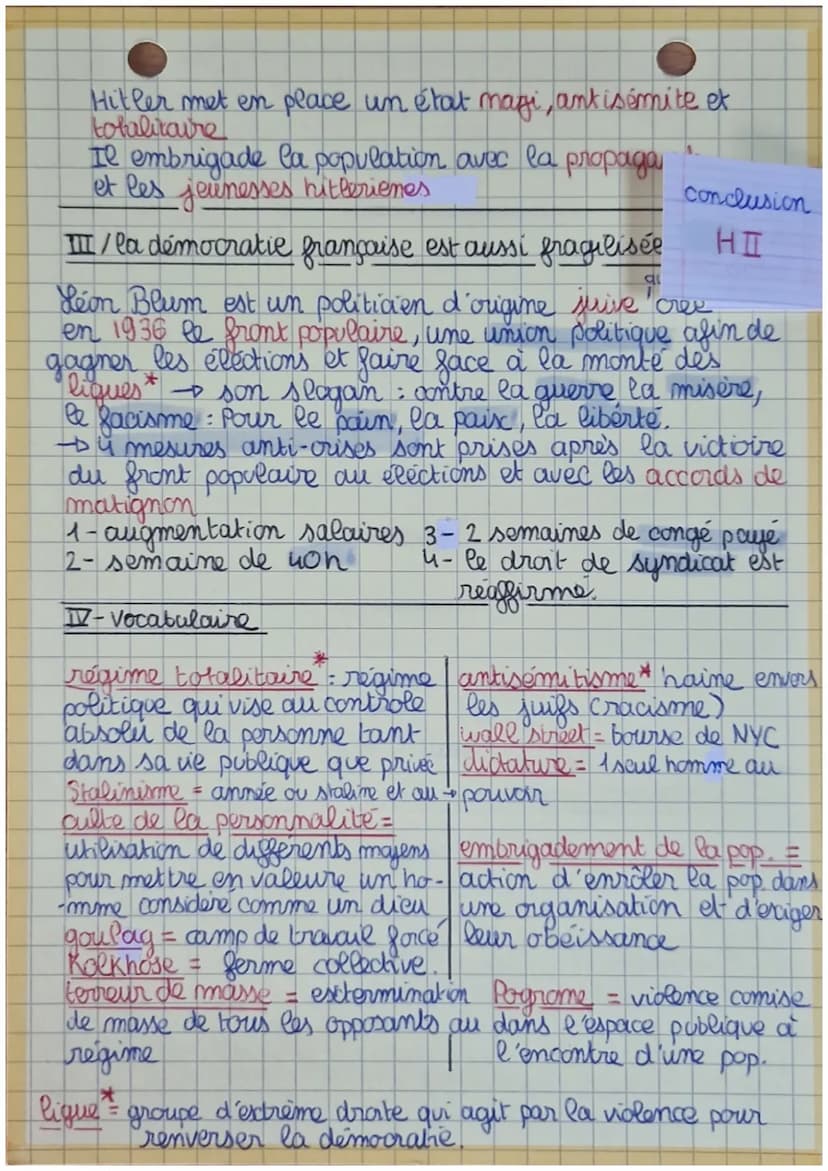 Hitler met en place un état nazi, antisémite et
totalitaire
Il embrigade la population avec la propaga
et les jeunesses hitlerienes
conclusion
H II
III / la démocratie française est aussi fragilisée
Léon Blum est un politicien d'origine juive crée
en 1936 le front populaire, une union politique afin de
gagner les éléctions et faire face à la monté des
ligues* → son slogan : contre la guerre la misère,
le facisme : Pour le pain, la paix, la liberté.
→ 4 mesures anti-crises sont prises après la victioire
du front populaire au éléctions et avec les accords de
matignon
1 - augmentation salaires 3 - 2 semaines de congé payé
2 - semaine de 40h 4 - le droit de syndicat est
réaffirmé.
IV - Vocabulaire
régime totalitaire* : régime
politique qui vise au controle
absolu de la personne tant
dans sa vie publique que privée
Stalinisme = année ou staline et au → pouvoir
culte de la personnalité =
utilisation de différents moyens
pour mettre en valeure un ho-
-mme considéré comme un dieu
goulag = camp de travail forcé
Kolkhose = ferme collective.
terreur de masse = extermination
de masse de tous les opposants au
régime
antisémitisme* haine envers
les juifs (racisme)
wall street = bourse de NYC
dictature = 1 seul homme au
embrigademont de la pop. =
action d'enrôler la pop dans
une organisation et d'exiger
leur obéissance
Pogrome = violence comise
dans l'espace publique à
l'encontre d'une pop.
ligue* = groupe d'extrême droite qui agit par la violence pour
renverser la démocratie.